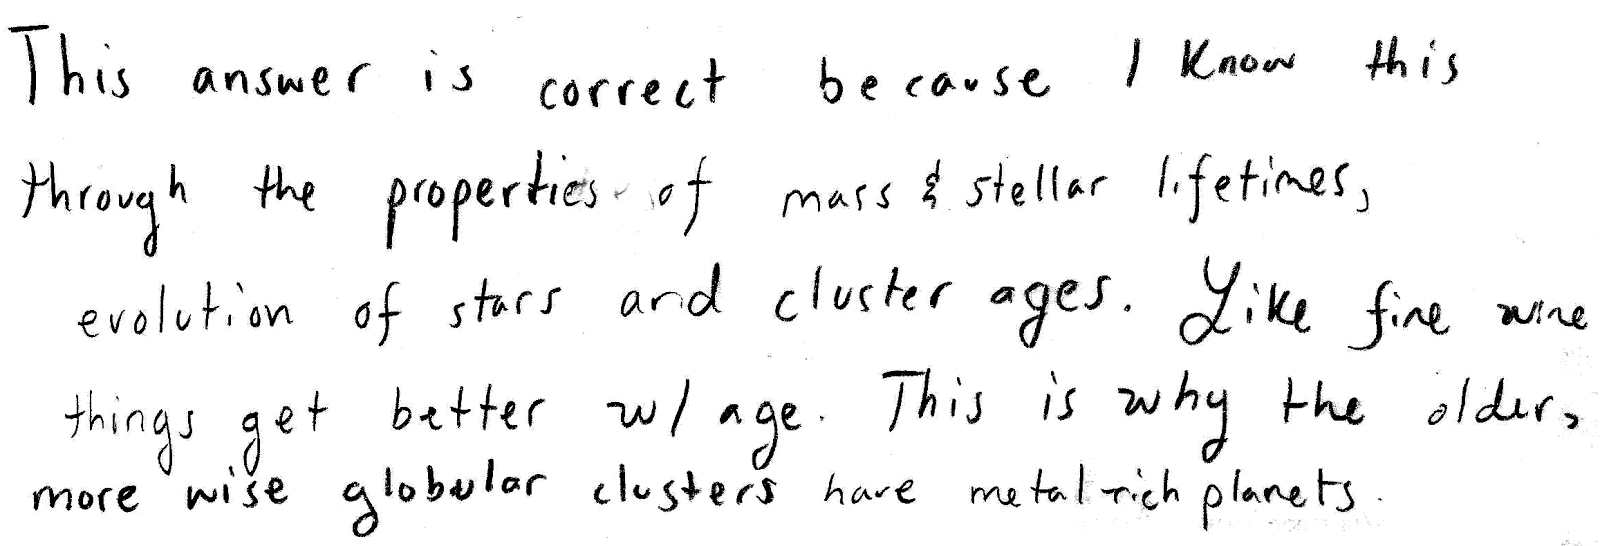 This answer is correct because I know this
through the properties of mass & stellar lifetimes,
evolution of stars and cluster ages. Like fine wine
things get better w/ age. This is why the older,
more wise globular clusters have metal-rich planets.